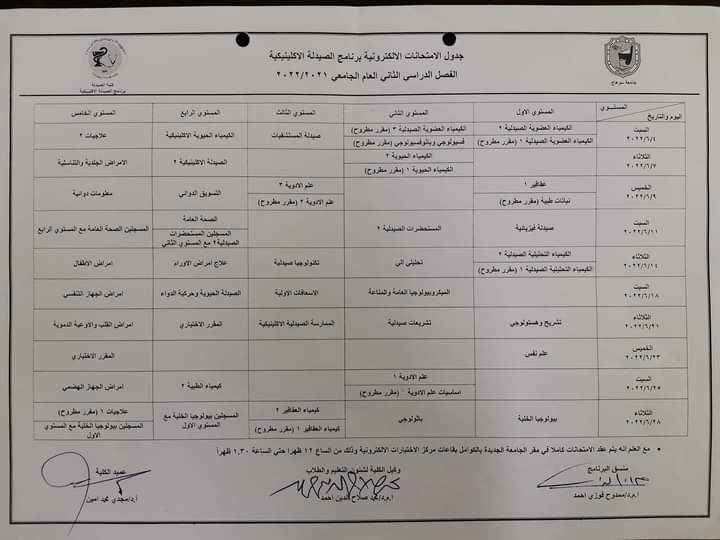 جدول الامتحانات الالكترونية برنامج الصيدلة الاكلينيكية
الفصل الدراسي الثاني العام الجامعي ٢٠٢٢/٢٠٢١
جامعة سوهاج
كلية الصيدلة
برنامج الصيدلة الاكلينيكية
المستوي
اليوم والتاريخ
المستوي الاول
المستوي الثاني
المستوي الثالث
المستوي الرابع
المستوي الخامس
السبت
٢٠٢٢/٦/٤
الكيمياء العضوية الصيدلية ٢
الكيمياء العضوية الصيدلية ١ (مقرر مطروح)
الكيمياء العضوية الصيدلية ٣ (مقرر مطروح)
فسيولوجي وباثوفسيولوجي (مقرر مطروح)
صيدلة المستشفيات
الكيمياء الحيوية الاكلينيكية
علاجيات ٢
الثلاثاء
٢٠٢٢/٦/٧
الكيمياء الحيوية ٢
الكيمياء الحيوية ١ (مقرر مطروح)
الصيدلة الاكلينيكية ٢
الامراض الجلدية والتناسلية
الخميس
٢٠٢٢/٦/٩
عقاقير ١
نباتات طبية (مقرر مطروح)
علم الادوية ٣
علم الادوية ٢ (مقرر مطروح)
التسويق الدوائي
معلومات دوائية
السبت
٢٠٢٢/٦/١١
صيدلة فيزيائية
المستحضرات الصيدلية ٢
الصحة العامة
المسجلين المستحضرات
الصيدلية٢ مع المستوي الثاني
المسجلين الصحة العامة مع المستوي الرابع
الثلاثاء
٢٠٢٢/٦/١٤
الكيمياء التحليلية الصيدلية ٢
الكيمياء التحليلية الصيدلية ١ (مقرر مطروح)
تحليلي الي
تكنولوجيا صيدلية
علاج امراض الاورام
امراض الاطفال
السبت
٢٠٢٢/٦/١٨
الميكروبيولوجيا العامة والمناعة
الاسعافات الاولية
الصيدلة الحيوية وحركية الدواء
امراض الجهاز التنفسي
الثلاثاء
٢٠٢٢/٦/٢١
تشريح وهستولوجي
تشريعات صيدلية
الممارسة الصيدلية الاكلينيكية
المقرر الاختياري
امراض القلب والاوعية الدموية
الخميس
٢٠٢٢/٦/٢٣
علم نفس
المقرر الاختياري
السبت
٢٠٢٢/٦/٢٥
علم الادوية ١
اساسيات علم الادوية (مقرر مطروح)
كيمياء الطبية ٢
امراض الجهاز الهضمي
الثلاثاء
٢٠٢٢/٦/٢٨
بيولوجيا الخلية
باثولوجي
كيمياء العقاقير ٢
كيمياء العقاقير ١ (مقرر مطروح)
المسجلين بيولوجيا الخلية مع
المستوي الاول
علاجيات ١ (مقرر مطروح)
المسجلين بيولوجيا الخلية مع المستوي
الاول
• مع العلم أنه يتم عقد الامتحانات كاملا في مقر الجامعة الجديدة بالكوامل بقاعات مركز الاختبارات الالكترونية وذلك من الساع ١٢ ظهرا حتي الساعة ١.٣٠ ظهراً
منسق البرنامج
ا.م.د/ممدوح فوزي احمد
وكيل الكلية لشئون التعليم والطلاب
ا.م.د/عيد صلاح الدين احمد
عميد الكلية
ا.د/مجدي محمد امين